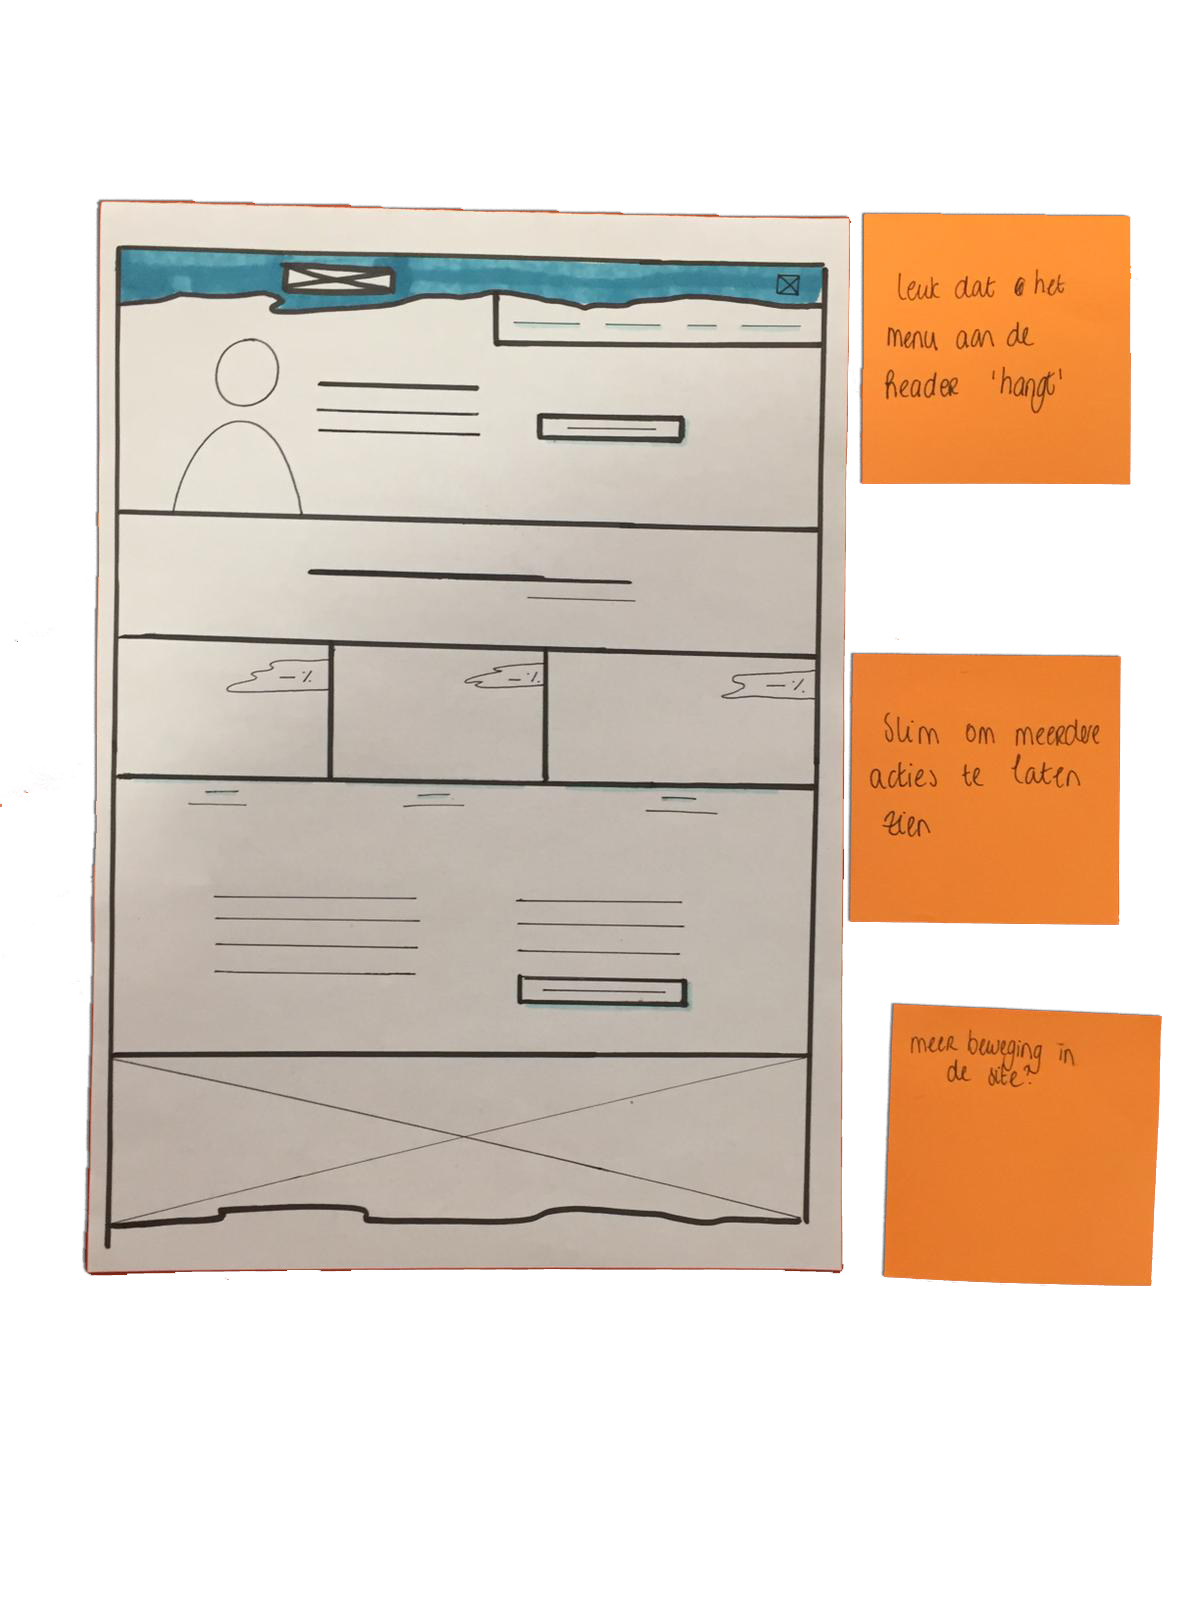 leuk dat het
menu aan de
header 'hangt'
- %
- %
- %
Slim om meerdere
acties te laten
zien
meer beweging in
de site?